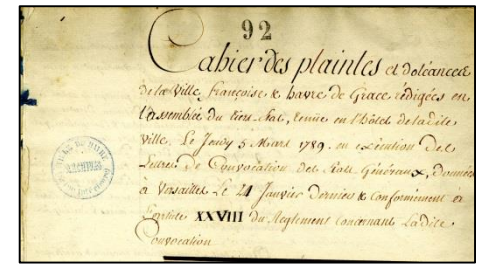 92
Cahier des plaintes et doléances
de la Ville françoise & havre de Grace rédigées en
l'assemblée du tiers-état, tenue en l'hôtel de ladite
ville, Le Jeudy 5 Mars 1789. en exécution des
Lettres de Convocation des Etats Généraux, données
a Versailles Le 24 Janvier dernier & conformément à
L'article XXVIII du Reglement concernant Ladite
Convocation
ARCHIVES